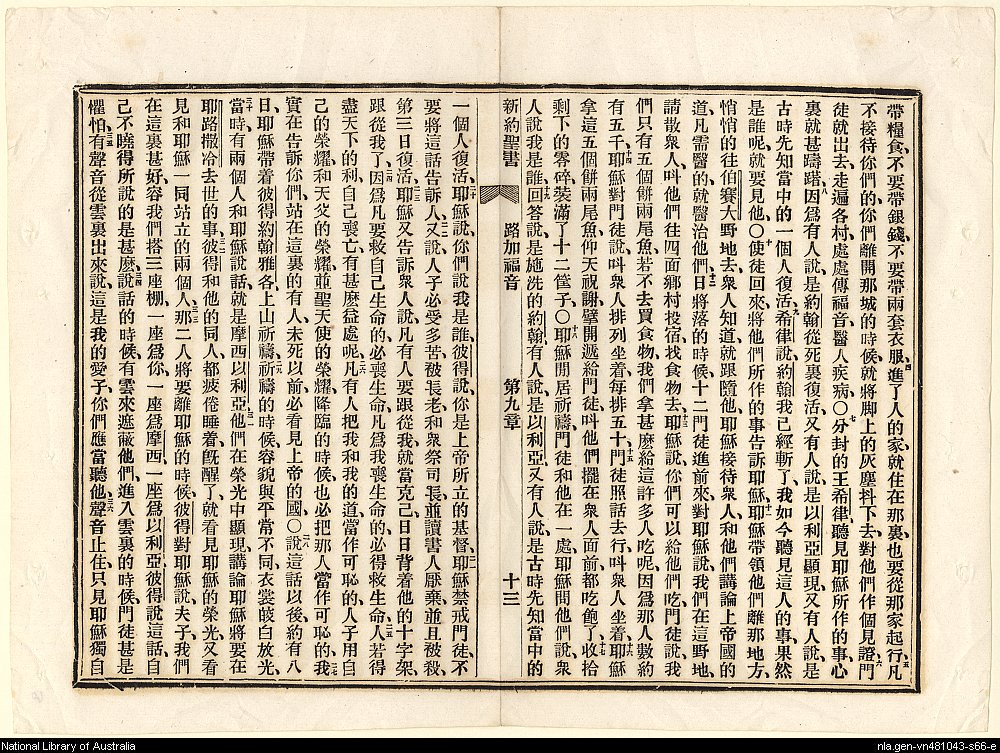 帶糧食、不要帶銀錢、不要帶兩套衣服、四進了人的家、就住在那裏、也要從那家起行、五凡
不接待你們的、你們離開那城的時候、就將脚上的灰塵抖下去、對他們作個見證、六門
徒就出去、走遍各村、處處傳福音、醫人疾病、〇七分封的王希律聽見耶穌所作的事、心
裏就甚躊躇、因爲有人說、是約翰從死裏復活、八又有人說、是以利亞顯現、又有人說、是
古時先知當中的一個人復活、九希律說、約翰我已經斬了、我如今聽見這人的事、果然
是誰呢、就要見他、〇十使徒回來、將他們所作的事告訴耶穌、耶穌帶領他們離那地方、
悄悄的往伯賽大野地去、十一衆人知道、就跟隨他、耶穌接待衆人、和他們講論上帝國的
道、凡需醫的、就醫治他們、十二日將落的時候、十二門徒進前來、對耶穌說、我們在這野地、
請散衆人、叫他們往四面鄉村投宿、找食物去、十三耶穌說、你們可以給他們吃、門徒說、我
們只有五個餅兩尾魚、若不去買食物、我們拿甚麽給這許多人吃呢、十四因爲那人數約
有五千、耶穌對門徒說、叫衆人排列坐着、每排五十、十五門徒照話去行、叫衆人坐着、十六耶穌
拿這五個餅、兩尾魚、仰天祝謝、擘開、遞給門徒、叫他們擺在衆人面前、十七都吃飽了、收拾
剩下的零碎、裝滿了十二筐子、〇十八耶穌閒居祈禱、門徒和他在一處、耶穌問他們說、衆
人說我是誰、十九回答說、是施洗的約翰、有人說、是以利亞、又有人說、是古時先知當中的
新約聖書 路加福音 第九章 十三
一個人復活、二十耶穌說、你們說我是誰、彼得說、你是上帝所立的基督、二一耶穌禁戒門徒、不
要將這話告訴人、二二又說、人子必受多苦、被長老和衆祭司長並讀書人厭棄、並且被殺、
第三日復活、二三耶穌又告訴衆人說、凡有人要跟從我、就當克己、日日背着他的十字架、
跟從我了、二四因爲凡要救自己生命的、必喪生命、凡爲我喪生命的、必得救生命、二五人若得
盡天下的利、自己喪亡、有甚麽益處呢、二六凡有人把我和我的道當作可恥的、人子用自
己的榮耀、和天父的榮耀、並聖天使的榮耀、降臨的時候、也必把那人當作可恥的、二七我
實在告訴你們、站在這裏的有人、未死以前、必看見上帝的國、〇二八說這話以後、約有八
日、耶穌帶着彼得約翰雅各上山祈禱、二九祈禱的時候、容貌與平常不同、衣裳皎白放光、
三十當時有兩個人和耶穌說話、就是摩西以利亞、三一他們在榮光中顯現、講論耶穌將要在
耶路撒冷去世的事、三二彼得和他的同人都疲倦睡着、旣醒了、就看見耶穌的榮光、又看
見和耶穌一同站立的兩個人、三三那二人將要離耶穌的時候、彼得對耶穌說、夫子、我們
在這裏甚好、容我們搭三座棚、一座爲你、一座爲摩西、一座爲以利亞、彼得說這話、自
己不曉得所說的是甚麽、三四說話的時候、有雲來遮蔽他們、進入雲裏的時候、門徒甚是
懼怕、三五有聲音從雲裏出來說、這是我的愛子、你們應當聽他、三六聲音止住、只見耶穌獨自
National Library of Australia
nla.gen-vn481043-s66-e